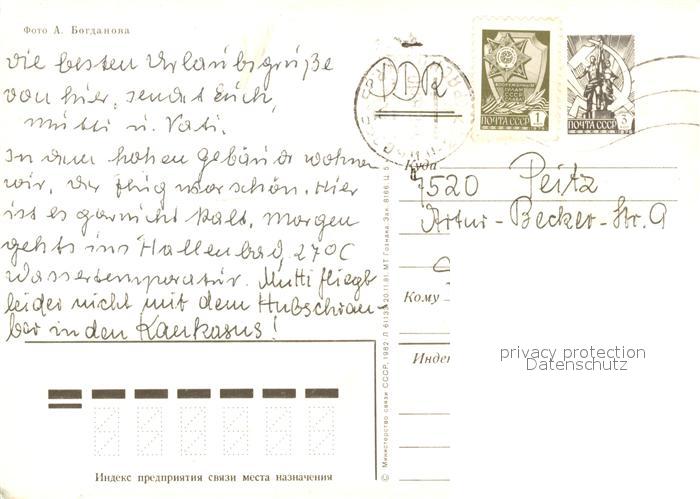 Фото А. Богданова
die besten Urlaubsgrüße
von hier, sendet Euch,
Mutti u. Vati.
In dem hohen Gebäude wohnen
wir, der Flug war schön. Hier
ist es garnicht kalt, morgen
gehts ins Hallenbad 27°C
Wassertemperatur. Mutti fliegt
leider nicht mit dem Hubschrau-
ber in den Kaukasus!
DDR
ВООРУЖЕННЫМ
СИЛАМ
СССР
СЛАВА
ПОЧТА СССР 1
ПОЧТА СССР 3
Куда
7520 Peitz
Artur-Becker-Str. 9
Кому
Индек
privacy protection
Datenschutz
© Министерство связи СССР, 1982. МТ Гознака. Зак. 8166. Ц. 5
Индекс предприятия связи места назначения